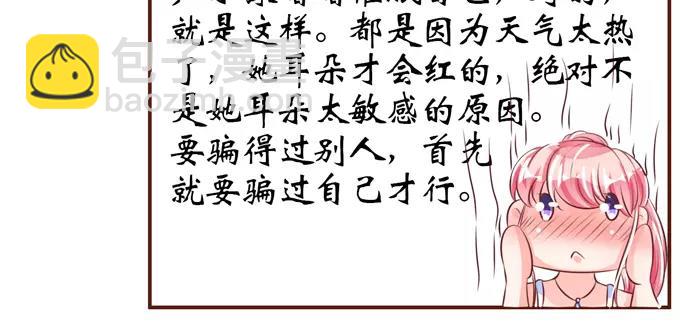 就是这样。都是因为天气太热
了，她耳朵才会红的，绝对不
是她耳朵太敏感的原因。
要骗得过别人，首先
就要骗过自己才行。
包子漫畫
baozimh.com